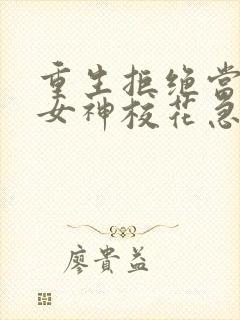 重生拒绝当
女神校花急
廖貴益